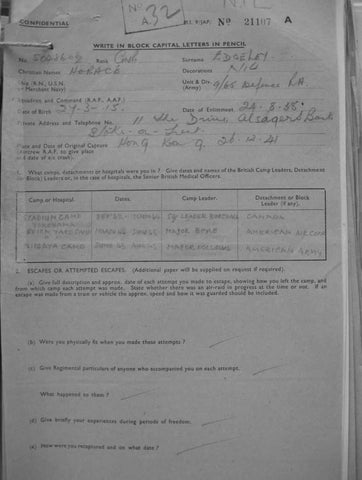 No
A. 32
NIL
CONFIDENTIAL
M.I. 9/JAP/ No 21107 A
WRITE IN BLOCK CAPITAL LETTERS IN PENCIL
No. Rank Surname EDGELEY
Christian Names HORACE Decorations NIL
Ship (R.N., U.S.N. or Merchant Navy) Unit & Div. (Army) Defence R.A.
Squadron and Command (R.A.F., A.A.F.)
Date of Birth 27-3-15. Date of Enlistment. 24-8-35.
Private Address and Telephone No. 11 The Drive, Alsagers Bank
Stoke-on-Trent
Place and Date of Original Capture Hong Kong. 26-12-41
(Aircrew R.A.F. to give place and date of a/c crash).
1. What camps, detachments or hospitals were you in? Give dates and names of the British Camp Leaders, Detachment (or Block) Leaders or, in the case of hospitals, the Senior British Medical Officers.
Camp or Hospital. Dates. Camp Leader. Detachment or Block Leader (if any).
STADIUM CAMP SQ LEADER CANADA
YOKOHAMA
MAJOR AMERICAN AIR CORP
CAMP MAJOR AMERICAN ARMY
2. ESCAPES OR ATTEMPTED ESCAPES. (Additional paper will be supplied on request if required).
(a) Give full description and approx. date of each attempt you made to escape, showing how you left the camp, and
from which camp each attempt was made. State whether there was an air-raid in progress at the time or not. If an
escape was made from a train or vehicle the approx. speed and how it was guarded should be included.
(b) Were you physically fit when you made these attempts ?
(c) Give Regimental particulars of anyone who accompanied you on each attempt.
What happened to them ?
(d) Give briefly your experiences during periods of freedom.
(e) How were you recaptured and on what date ?